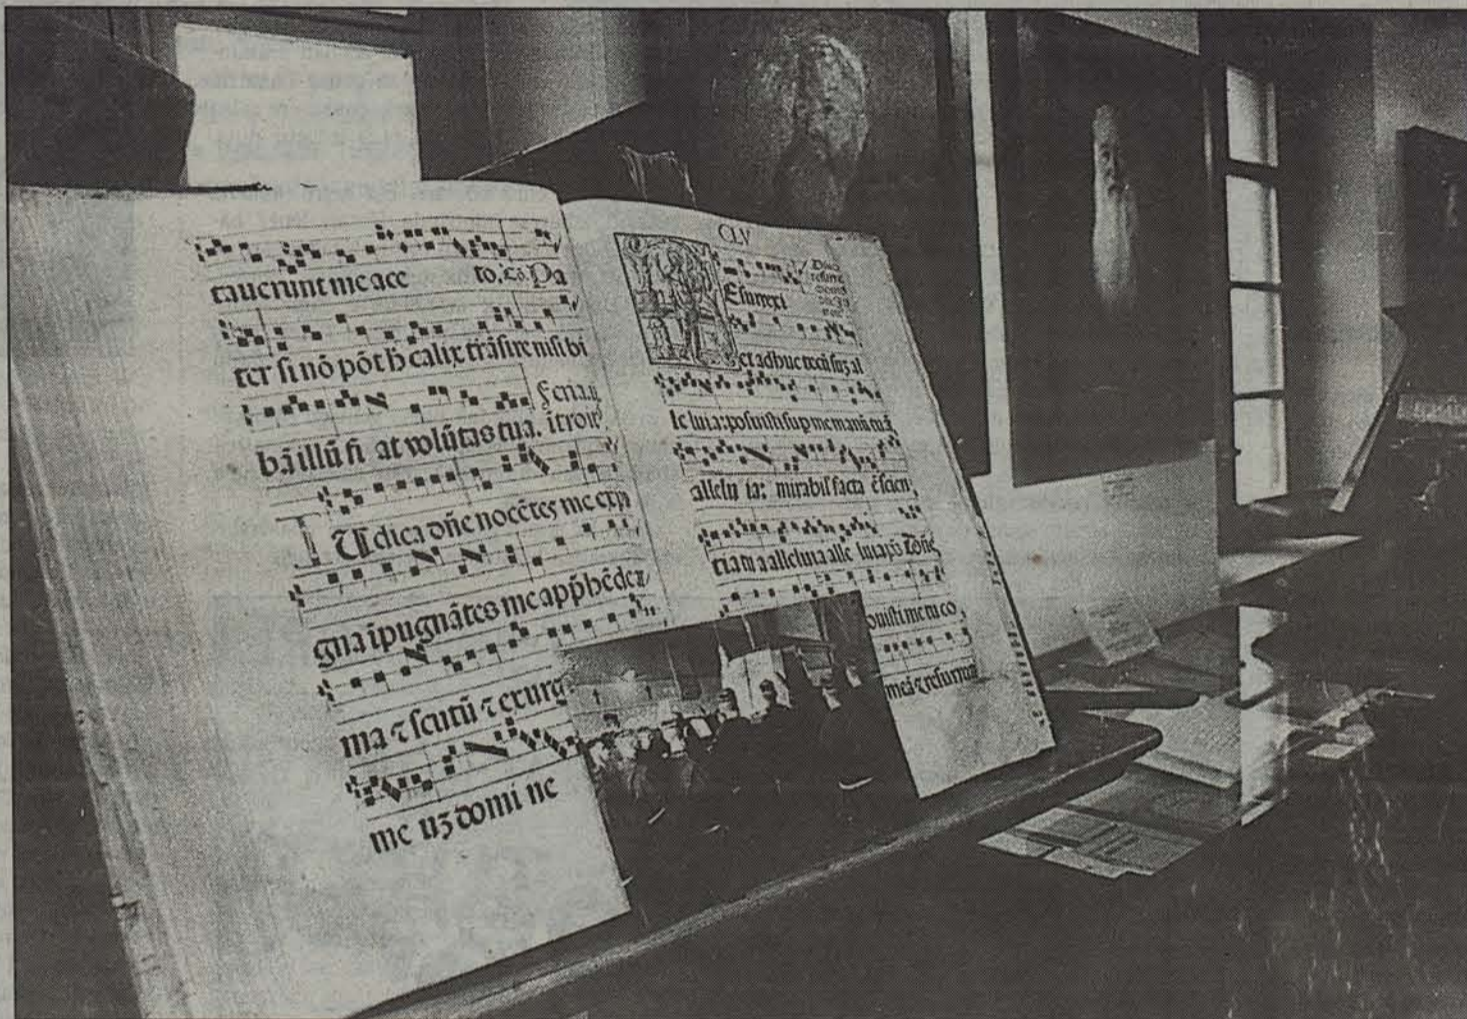 tauerunt me ace to. Cō. Pa
ter si nō pōt h̄ calix trāsire nisi bi
bā illū fi at volūtas tua. Feria.ij
ītroit⁹
IUdica dn̄e nocētes me expu
gna īpugnātes me app̄hēde ar
ma ⁊ scutū ⁊ exurge
me uʒ domi ne
CLV
Esurrexi
et adhuc tecū suʒ al
le luia: posuisti sup me manū tuā
allelu ia: mirabil' facta ē scien
tia tua alleluia alle luia. p̄s Dōn̄e
ouisti me tu co
meā ⁊ resurrec